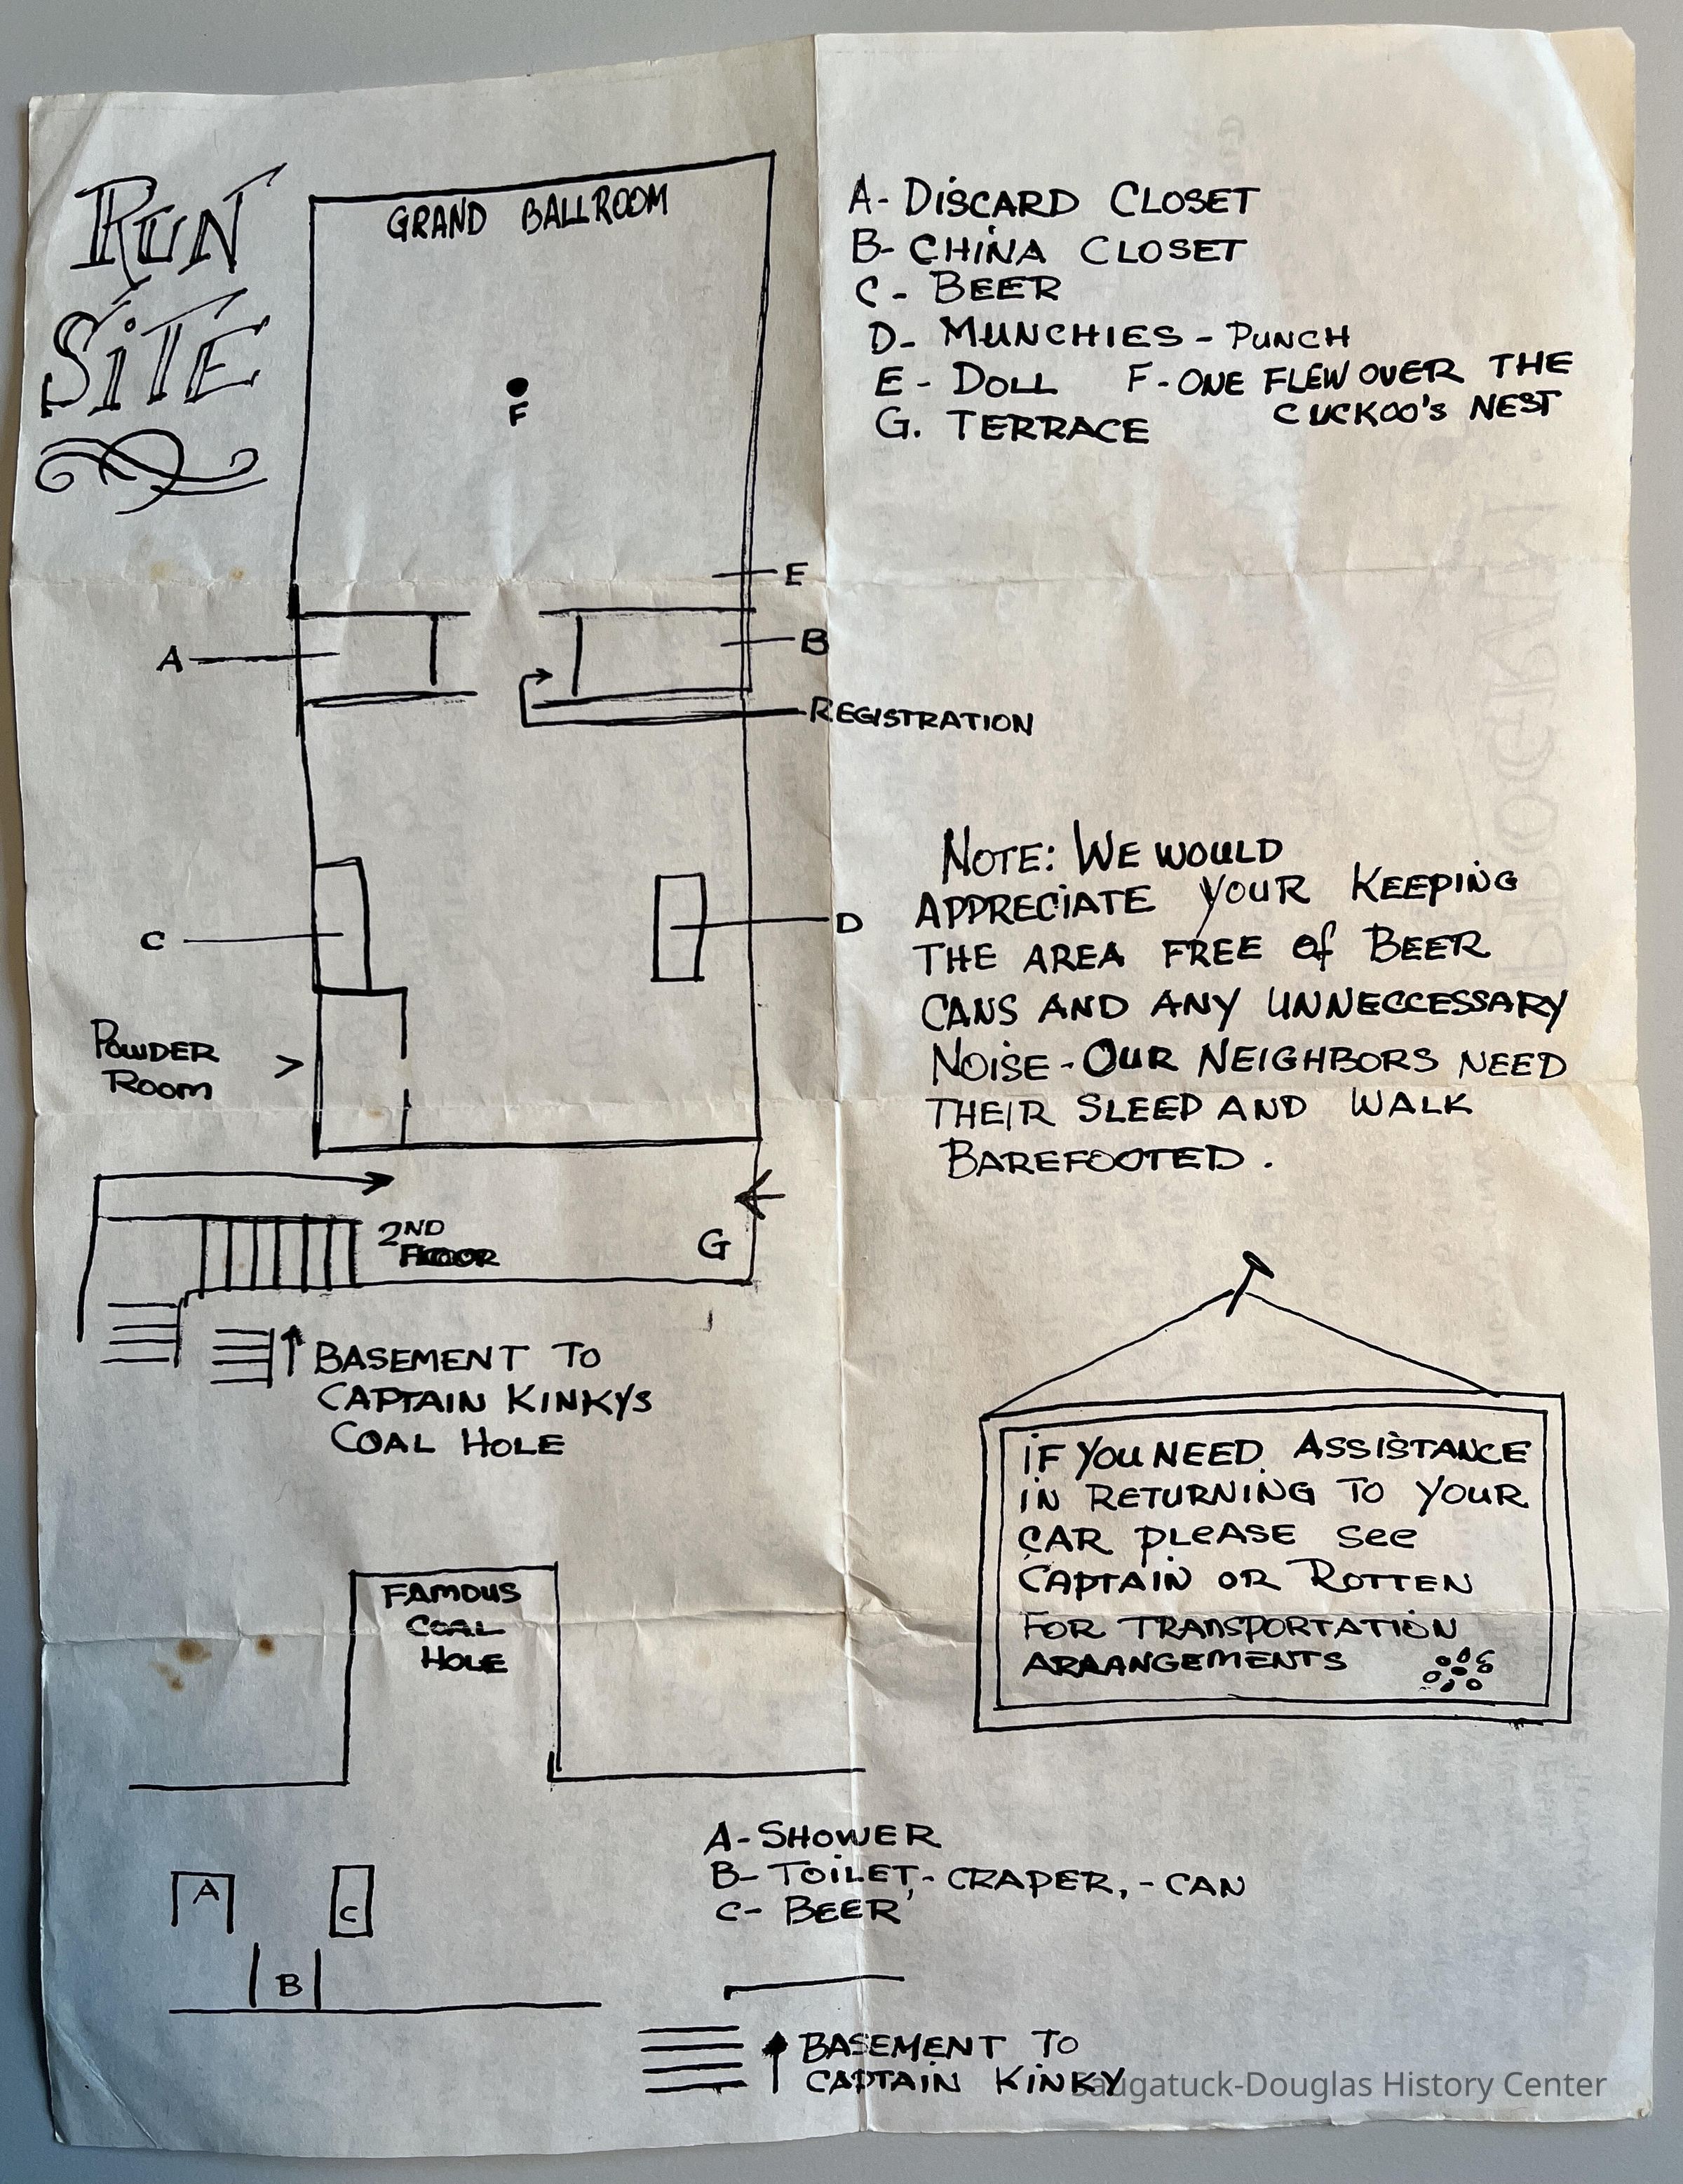 RUN
SiTE
GRAND BALLROOM
F
E
A
B
REGISTRATION
C
D
POWDER
ROOM
>
2ND
FLOOR
G
BASEMENT TO
CAPTAIN KINKYS
COAL HOLE
A- DISCARD CLOSET
B- CHINA CLOSET
C - BEER
D- MUNCHIES - PUNCH
E - DOLL F - ONE FLEW OVER THE
CUCKOO'S NEST
G. TERRACE
NOTE: WE WOULD
APPRECIATE YOUR KEEPING
THE AREA FREE Of BEER
CANS AND ANY UNNECCESSARY
NOISE - OUR NEIGHBORS NEED
THEIR SLEEP AND WALK
BAREFOOTED.
IF YOU NEED ASSISTANCE
IN RETURNING TO YOUR
CAR PLEASE See
CAPTAIN OR ROTTEN
FOR TRANSPORTATION
ARAANGEMENTS
FAMOUS
COAL
HOLE
A
C
B
A- SHOWER
B- TOILET, - CRAPER, - CAN
C- BEER
BASEMENT TO
CAPTAIN KINKY
Saugatuck-Douglas History Center